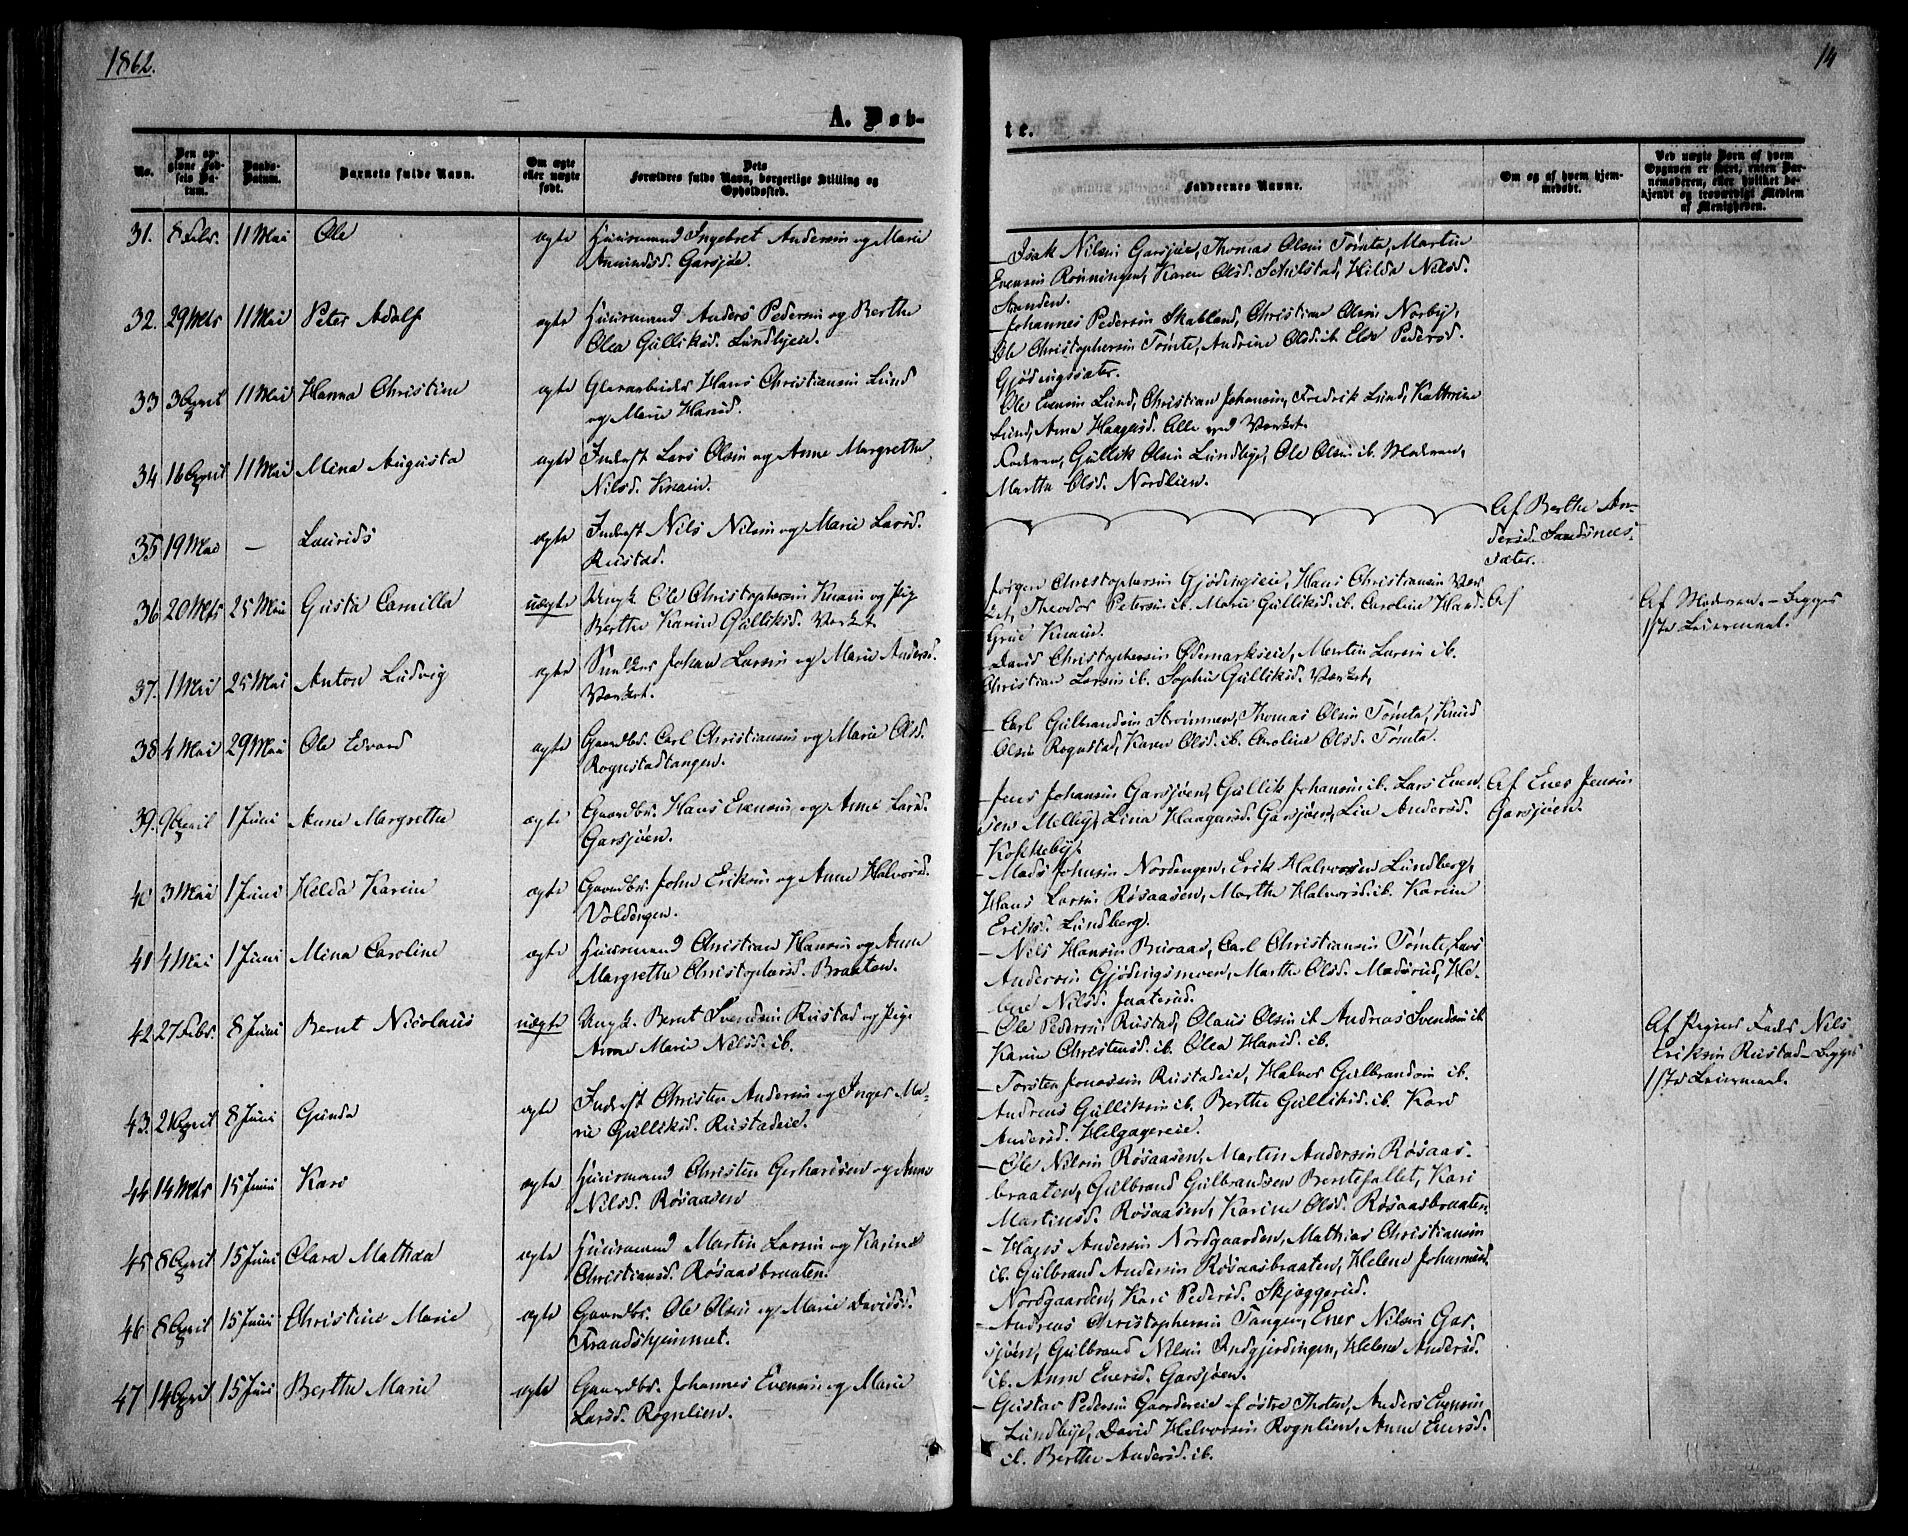 1862.
14
A. Døb-
te.
No.
Den opgivne Fødsels Datum.
Daabs-Datum.
Barnets fulde Navn.
Om ægte eller uægte født.
Dets Forældres fulde Navn, borgerlige Stilling og Opholdssted.
Faddernes Navne.
Om og af hvem hjemmedøbt.
Ved uægte Børn af hvem Opgaven er skeet, enten Barnemoderen, eller hvilket bekjendt og troværdigt Medlem af Menigheden.
31. 8 Febr. 11 Mai Ole ægte Huusmand Ingebret Andersen og Marie
Amundsd. Garsjøe.
Isak Nilsen Garsjøe, Thomas Olsen Tømte, Martin
Evensen Rønningen, Karen Olsd. Schilstad, Hilda Nilsd.
Stunden.
32. 29 Mts 11 Mai Peter Adolf ægte Huusmand Anders Pedersen og Berthe
Olea Gulliksd. Lundbyeie.
Johannes Pedersen Skabland, Christian Olsen Norby,
Ole Christophersen Tømte, Andrine Olsd. ib. Else Pedersd.
Gjødingssæter.
33 3 April 11 Mai Hanna Christine ægte Glasarbeider Hans Christiansen Lund
og Marie Hansd.
Ole Evensen Lund, Christian Johansen, Fredrik Lund, Kathrine
Lund, Anne Haagensd. Alle ved Værket.
34 16 April 11 Mai Mina Augusta ægte Inderst Lars Olsen og Anne Margrethe
Nilsd. Knain.
Faderen, Gullik Olsen Lundbye, Ole Olsen ib. Moderen,
Marthe Olsd. Nordlien.
35 19 Mai — Laurids ægte Inderst Nils Nilsen og Marie Larsd.
Rustad.
Af Berthe An-
dersd. Sandsnes-
sæter.
36 20 Mts 25 Mai Gusta Camilla uægte Ungk. Ole Christophersen Knain og Pige
Berthe Karine Gulliksd. Værket
Jørgen Christophersen Gjødingseie, Hans Christiansen Vær-
ket, Theodor Petersen ib. Marie Gulliksd. ib. Caroline Hansd.
Grue Knain.
Af
Af Moderen. – Begges
1ste Leiermaal.
37. 1 Mai 25 Mai Anton Ludvig ægte Smelter Johan Larsen og Marie Andersd.
Værket.
David Christophersen Ødemarkseie, Martin Larsen ib.
Christian Larsen ib. Sophie Gulliksd. Værket,
38 4 Mai 29 Mai Ole Edvard ægte Gaardbr. Carl Christiansen og Marie Olsd.
Rognstadtangen.
Carl Gulbrandsen Strømmen, Thomas Olsen Tømte, Knud
Olsen Rognstad, Karen Olsd. ib. Caroline Olsd. Tømte.
39. 9 April 1 Juni Anne Margrethe ægte Gaardbr. Hans Evensen og Anne Larsd.
Garsjøen.
Jens Johansen Garsjøen, Gullik Johansen ib. Lars Even-
sen Melleby, Lina Haagensd. Garsjøen, Lie Andersd.
Kokkeby.
Af Ener Jensen
Garsjøen.
40 3 Mai 1 Juni Helda Karine ægte Gaardbr. John Eriksen og Anne Halvorsd.
Voldengen.
Mads Johnsen Nordengen, Erik Halvorsen Lundberg,
Hans Larsen Røsaasen, Marthe Halvorsd. ib. Karine
Eriksd. Lundberg.
41 4 Mai 1 Juni Mina Caroline ægte Huusmand Christian Hansen og Anne
Margrethe Christophersd. Braaten.
Nils Hansen Buraas, Carl Christiansen Tømte, Lars
Andersen Gjødingsmoen, Marthe Olsd. Madsrud, He-
lene Nilsd. Jaaterud.
42 27 Febr. 8 Juni Bernt Nicolaus uægte Ungk. Bernt Svendsen Rustad og Pige
Anne Marie Nilsd. ib.
Ole Pedersen Rustad, Olaus Olsen ib. Andreas Svendsen ib.
Karine Christensd. ib. Olea Hansd. ib.
Af Pigens Fader Nils
Eriksen Rustad – Begges
1ste Leiermaal.
43. 2 April 8 Juni Gunda ægte Inderst Christen Andersen og Inger Ma-
rie Gulliksd. Rustadeie.
Torsten Jonassen Rustadeie, Halvor Gulbrandsen ib.
Andreas Gulliksen ib. Berthe Gulliksd. ib. Kari
Andersd. Helgagereie.
44 14 Mts 15 Juni Kari ægte Huusmand Christen Gerhardsen og Anne
Nilsd. Røsaasen
Ole Nilsen Røsaasen, Martin Andersen Røsaas-
braaten, Gulbrand Gulbrandsen Bentefallet, Kari
Martinsd. Røsaasen, Karine Olsd. Røsaasbraaten.
45 8 April 15 Juni Clara Mathea ægte Huusmand Martin Larsen og Karine
Christiansd. Røsaasbraaten.
Hans Andersen Nordgaarden, Mathias Christiansen
ib. Gulbrand Andersen Røsaasbraaten, Helene Johannesd.
Nordgaarden, Kari Pedersd. Skjøggerud.
46 8 April 15 Juni Christine Marie ægte Gaardbr. Ole Olsen og Marie Davidsd.
Strandshjemmet.
Andreas Christophersen Tangen, Ener Nilsen Gar-
sjøen, Gulbrand Nilsen Indgjerdingen, Helene Andersd.
ib. Anne Enersd. Garsjøen.
47 14 April 15 Juni Berthe Marie ægte Gaardbr. Johannes Evensen og Marie
Larsd. Rognlien.
Gustav Pedersen Gaardereie f østre Thoten, Anders Evensen
Lundbye, David Halvorsen Rognlien, Anne Enersd.
ib. Berthe Andersd. ib.